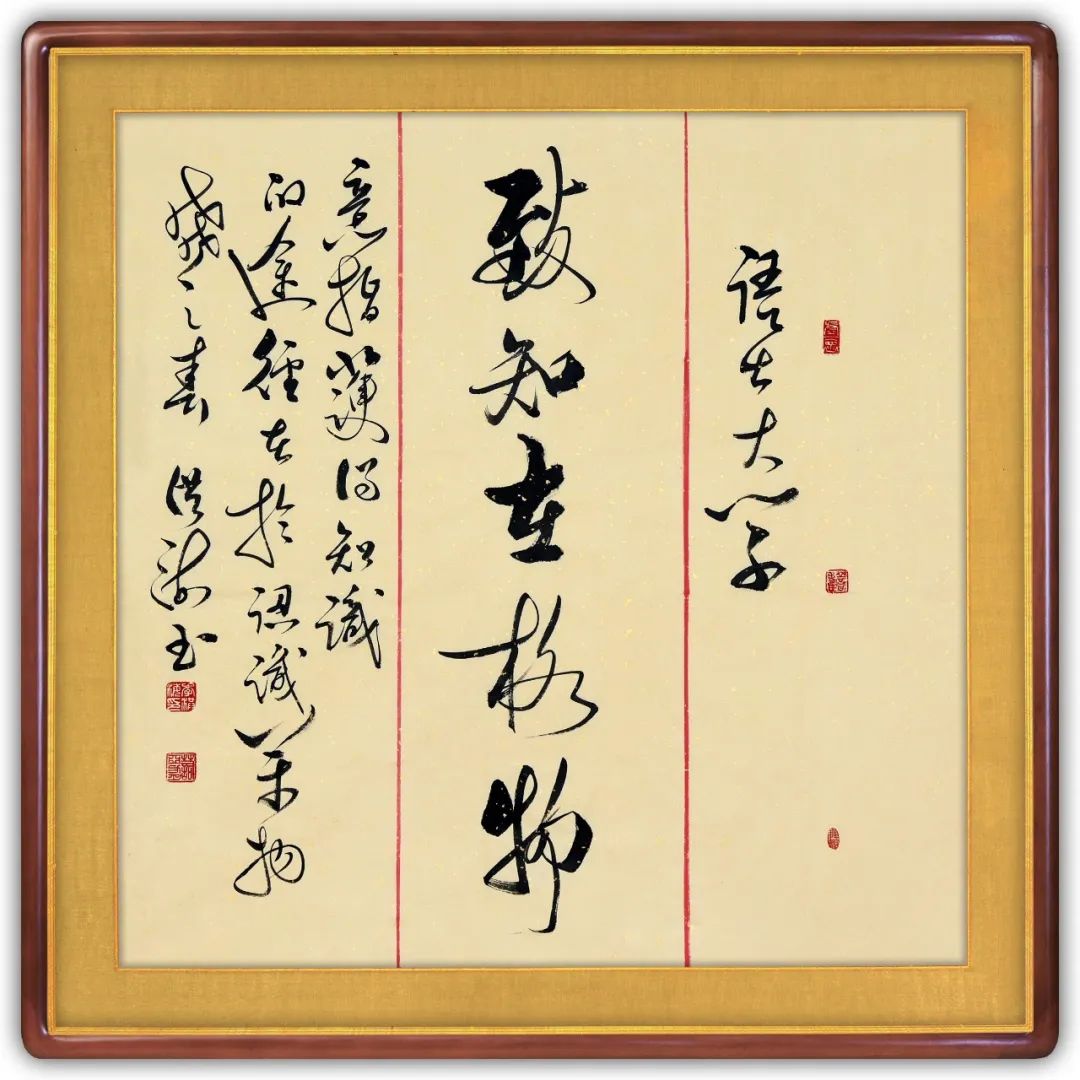 語出大學
致知在格物
意指獲得知識
的途徑在於認識萬物
之春 洪 書